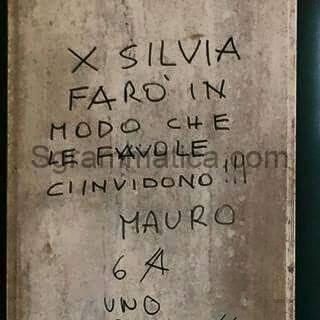 X SILVIA
FARÒ IN
MODO CHE
LE FAVOLE
CI INVIDONO !!!
MAURO
6 A
UNO
Sgrammatica.com